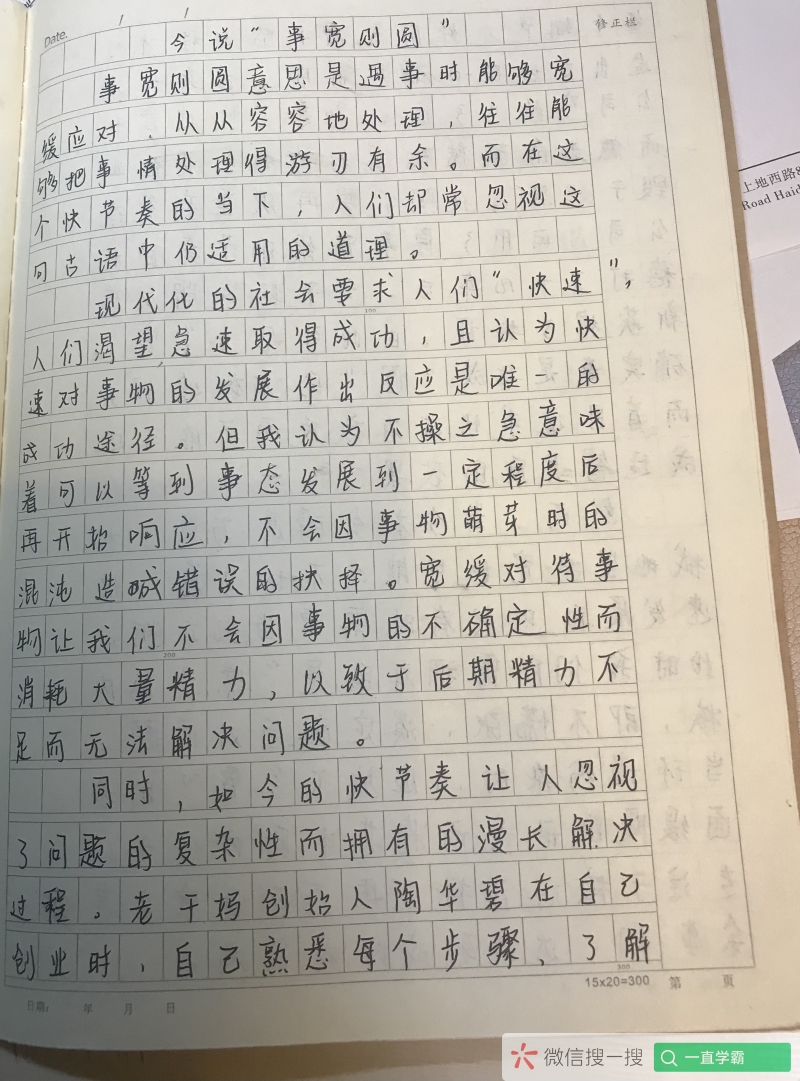 Date.
/ /
今说“事宽则圆”
修正栏
事宽则圆意思是遇事时能够宽
缓应对，从从容容地处理，往往能
够把事情处理得游刃有余。而在这
个快节奏的当下，人们却常忽视这
句古语中仍适用的道理。
现代化的社会要求人们“快速”，
人们渴望急速取得成功，且认为快
速对事物的发展作出反应是唯一的
成功途径。但我认为不操之急意味
着可以等到事态发展到一定程度后
再开始响应，不会因事物萌芽时的
混沌造成错误的抉择。宽缓对待事
物让我们不会因事物的不确定性而
消耗大量精力，以致于后期精力不
足而无法解决问题。
同时，如今的快节奏让人忽视
了问题的复杂性而拥有的漫长解决
过程。老干妈创始人陶华碧在自己
创业时，自己熟悉每个步骤，了解
100
200
300
15x20=300 第 页
日期： 年 月 日
上地西路8
Road Haid
微信搜一搜
一直学霸